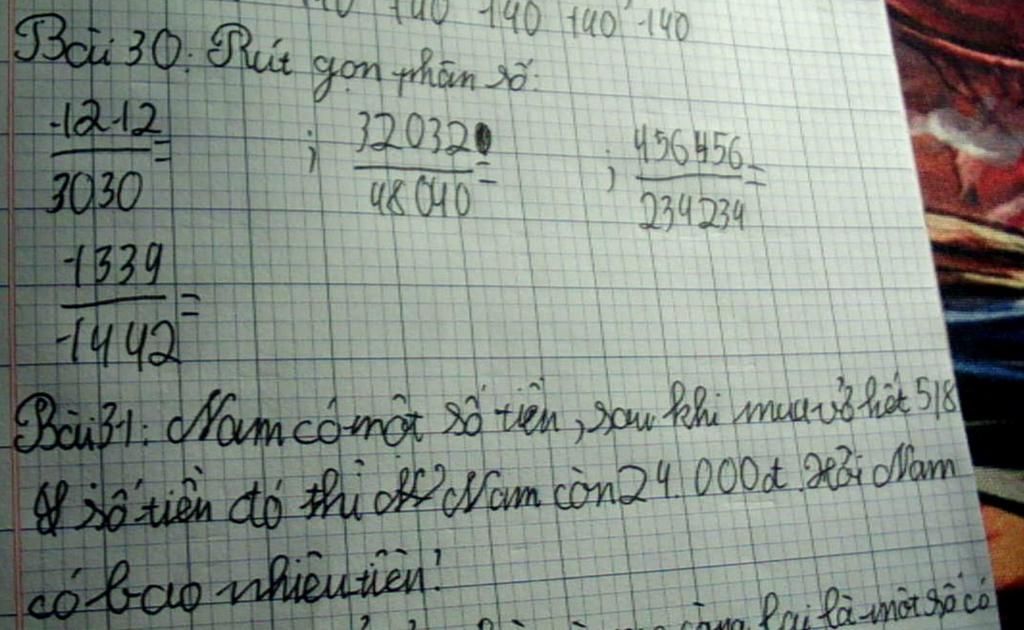 140 140 140 140
Bài 30: Rút gọn phân số:
-1212/3030 = ; 32032/48040 = ; 456456/234234 =
-1339/-1442 =
Bài 31: Nam có một số tiền, sau khi mua vở hết 5/8
số tiền đó thì Nam còn 24.000đ. Hỏi Nam
có bao nhiêu tiền?
lại là một số có